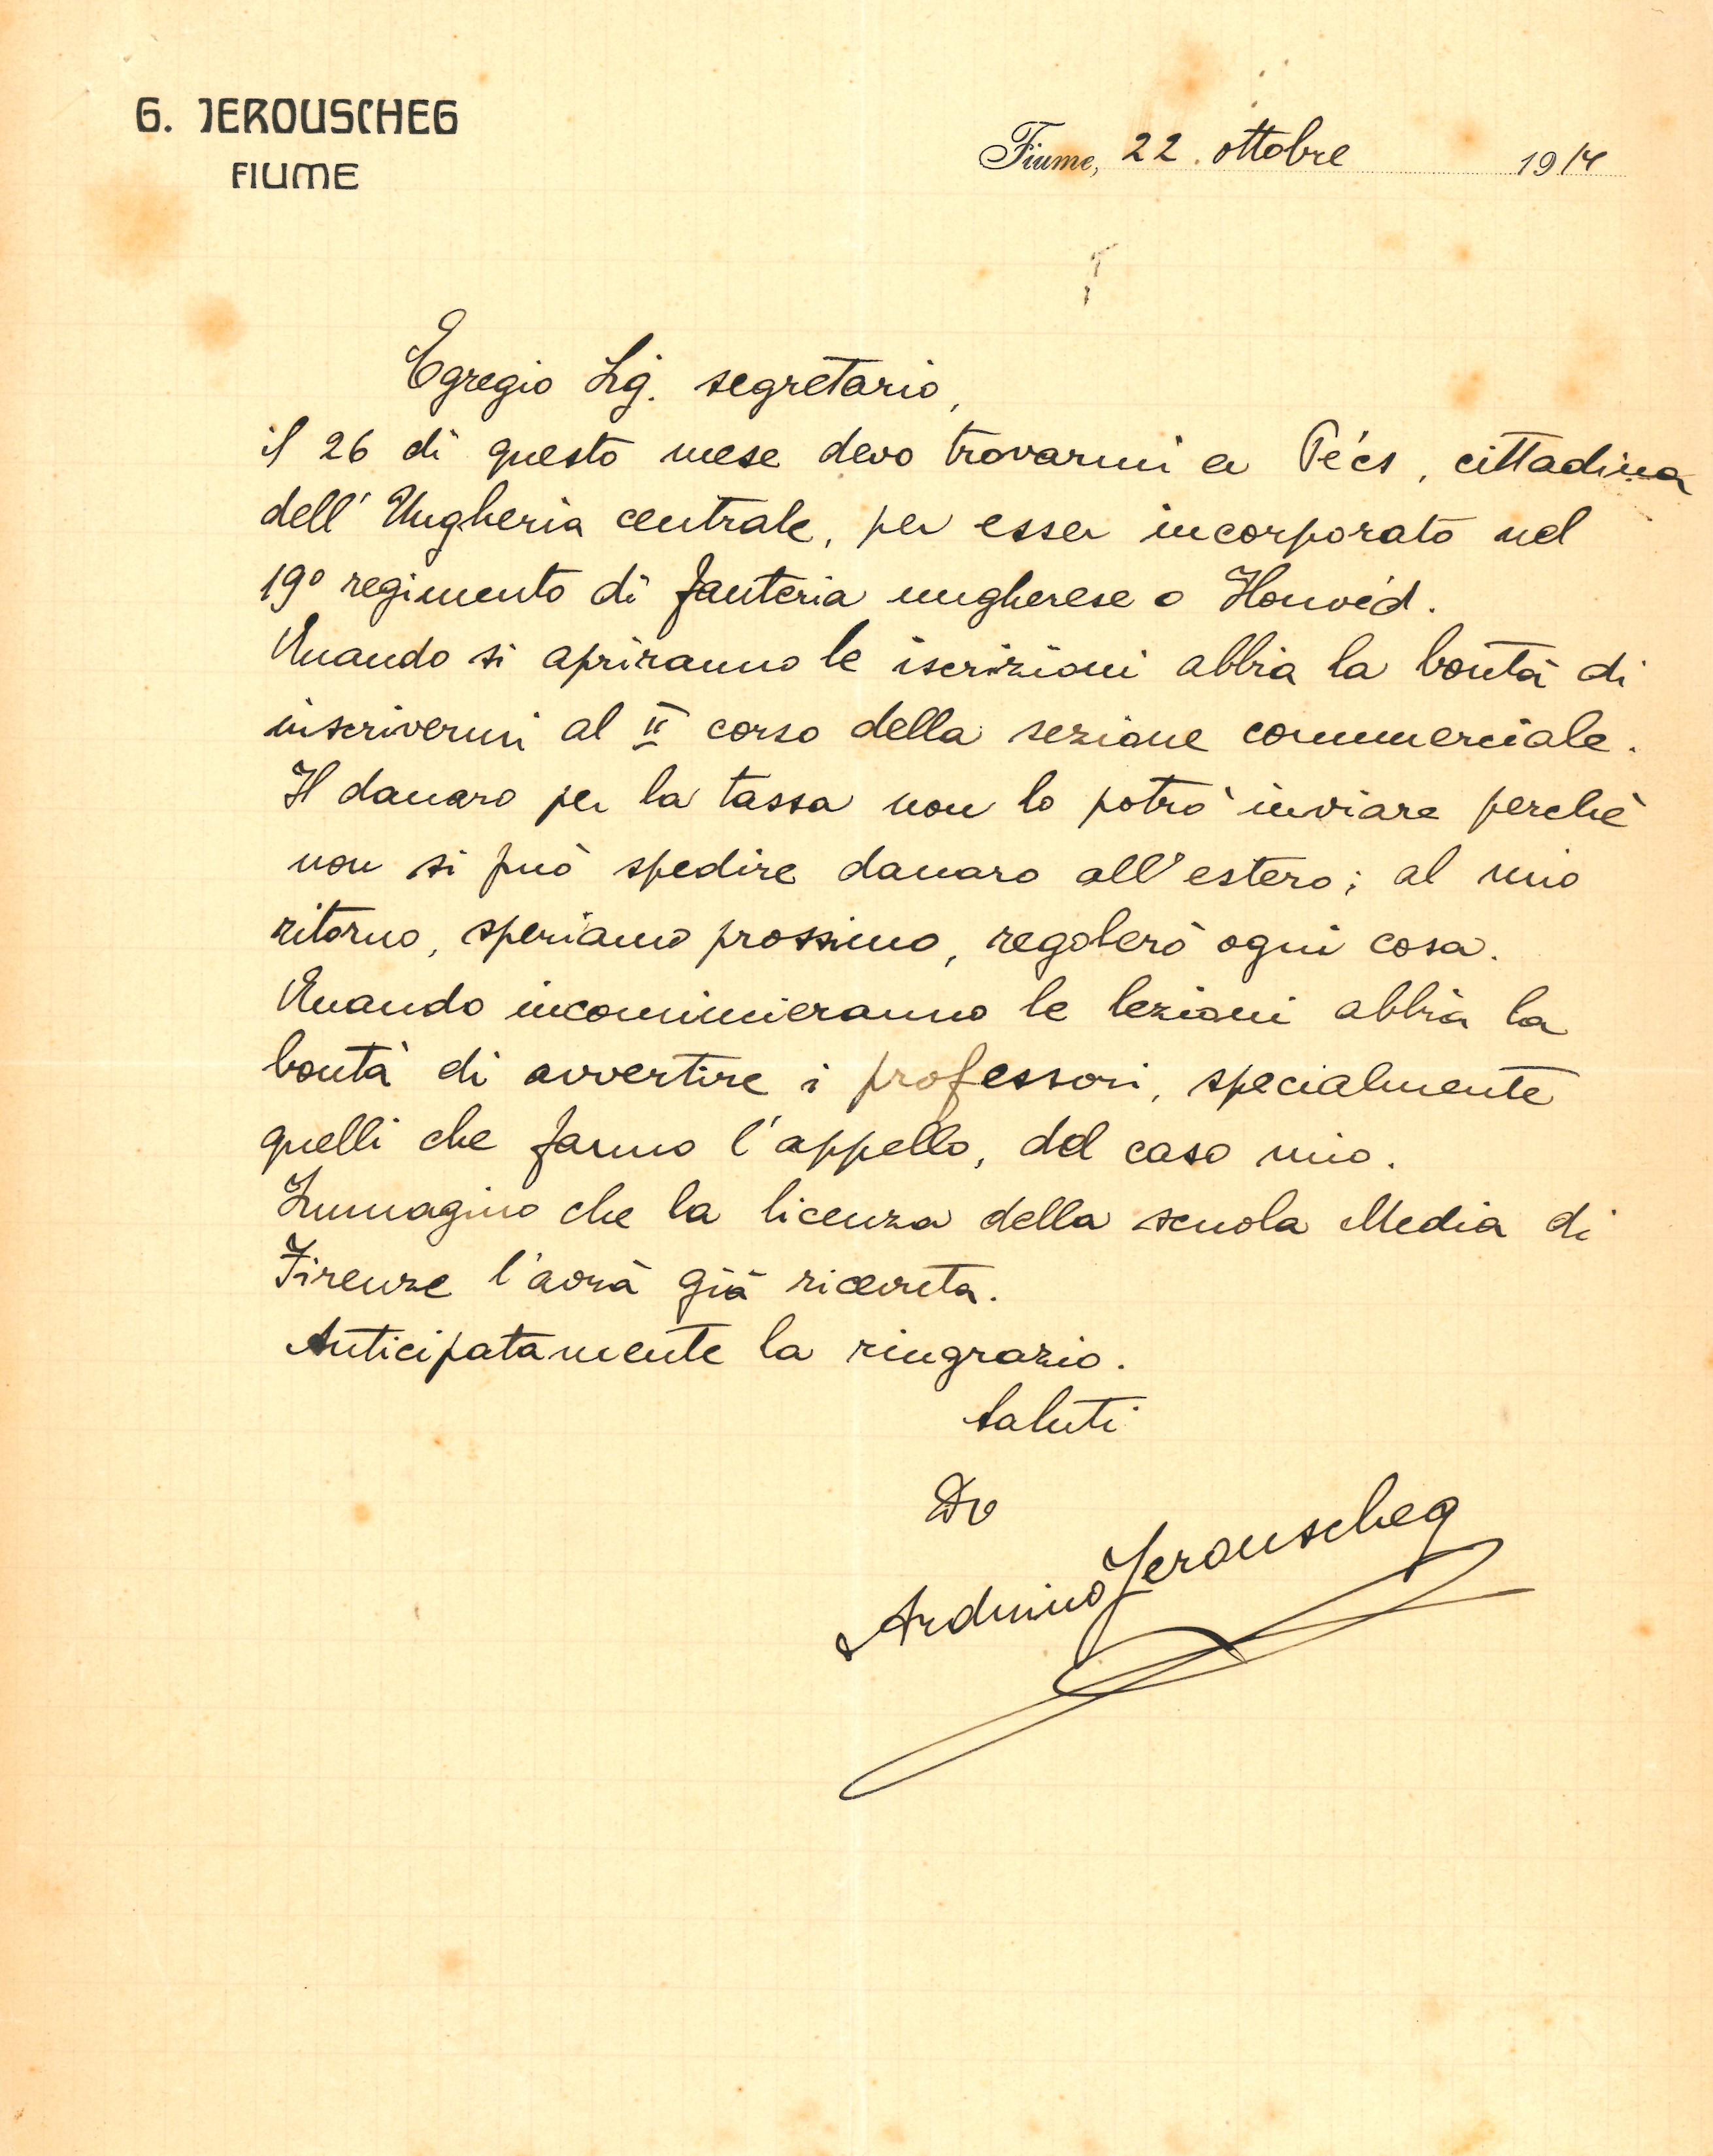 G. JEROUSCHEG
FIUME
Fiume, 22. ottobre 1914
Egregio Sig. segretario,
il 26 di questo mese devo trovarmi a Pécs, cittadina
dell'Ungheria centrale, per esser incorporato nel
19º regimento di fanteria ungherese o Honvéd.
Quando si apriranno le iscrizioni abbia la bontà di
inscrivermi al II corso della sezione commerciale.
Il danaro per la tassa non lo potrò inviare perchè
non si può spedire danaro all'estero; al mio
ritorno, speriamo prossimo, regolerò ogni cosa.
Quando incomincieranno le lezioni abbia la
bontà di avvertire i professori, specialmente
quelli che fanno l'appello, del caso mio.
Immagino che la licenza della scuola Media di
Firenze l'avrà già ricevuta.
Anticipatamente la ringrazio.
Saluti
Dv
Arduino Jerouscheg